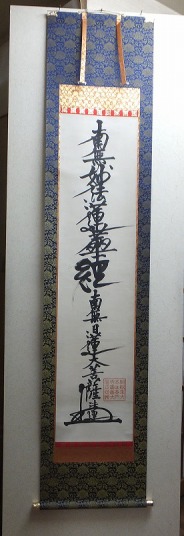 南無妙法蓮華経 南無日蓮大菩薩